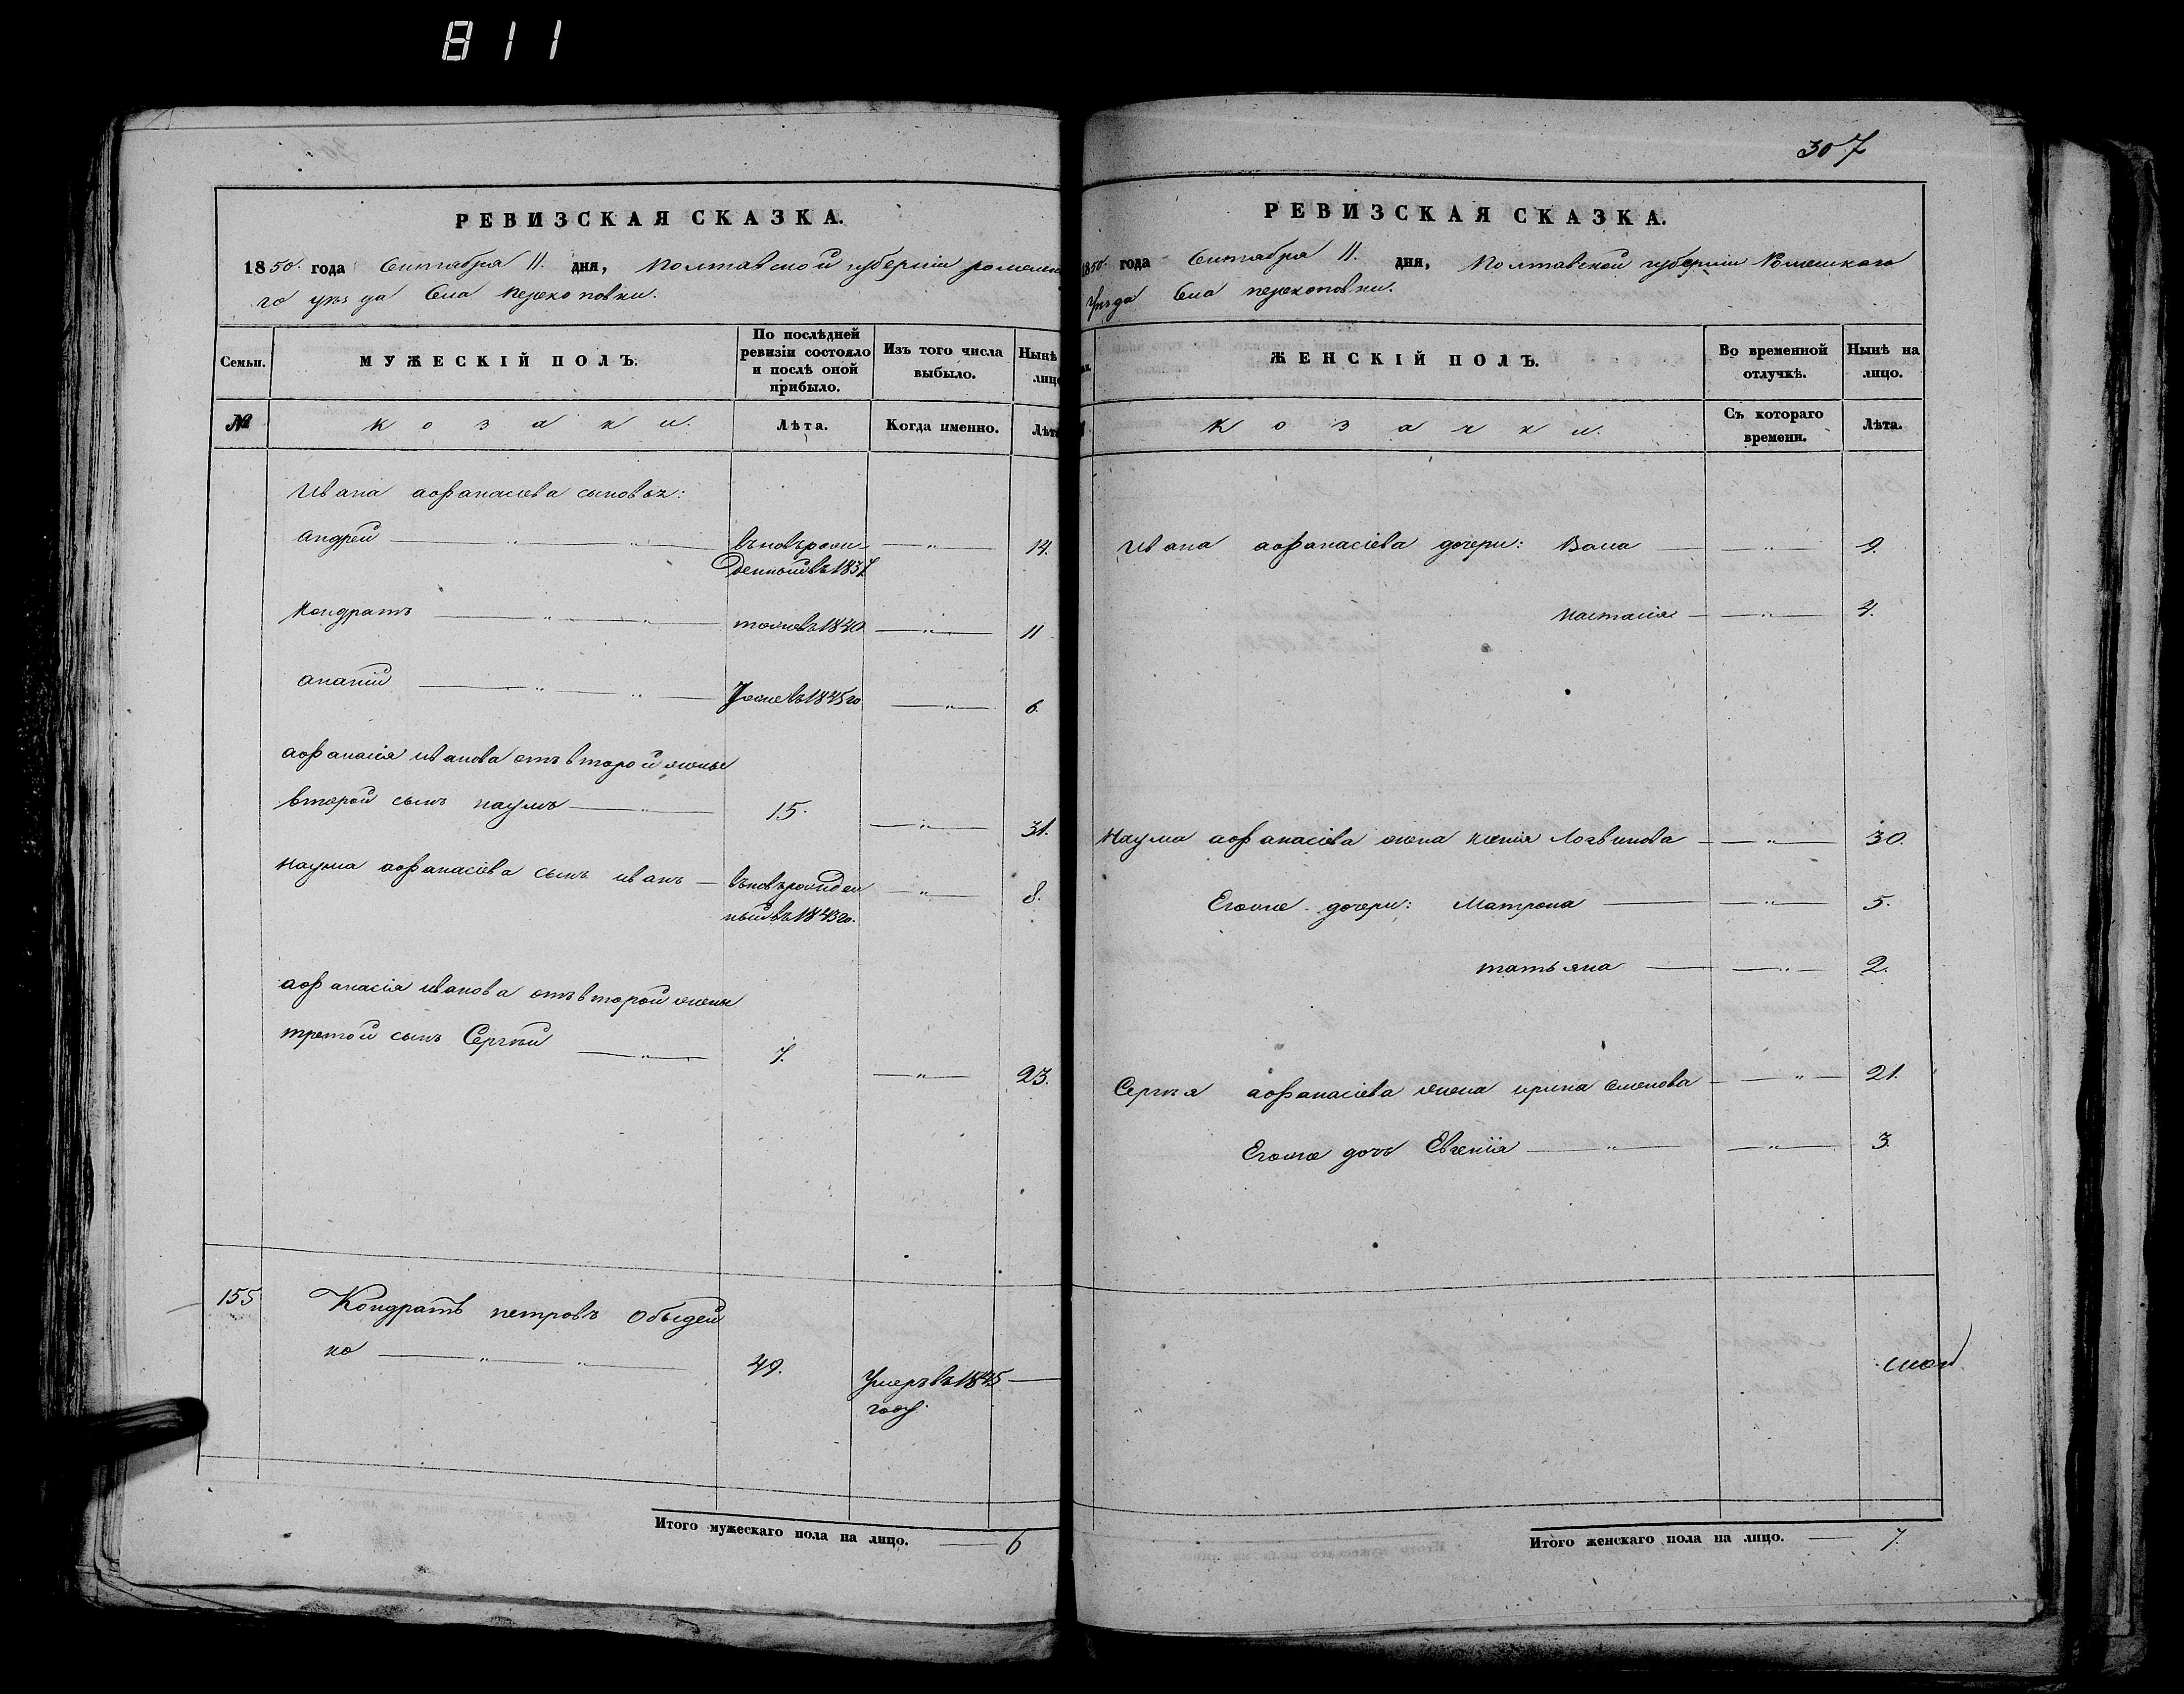 811
РЕВИЗСКАЯ СКАЗКА.
1850. года Сентября 11. дня, Полтавской губерніи роменска
го уѣзда Села перекоповки.
Семьи.
МУЖЕСКІЙ ПОЛЪ.
По послѣдней ревизіи состояло и послѣ оной прибыло.
Изъ того числа выбыло.
Нынѣ
лицо
№
козаки.
Лѣта.
Когда именно.
Лѣта
Ивана аофанасіева сыновья:
андрей — „ — „ — вновърож — „ — 14.
денныйвъ1837
Кондратъ — „ — „ — тожевъ1840 — „ — 11
ананій — „ — „ — Тожевъ1845го — „ — 6.
аофанасія иванова отъ второй жены
второй сынъ наумъ — „ — 15. — „ — 31.
наума аофанасіева сынъ иванъ — вновърожден — „ — 8.
ныйвъ1843го.
аофанасія иванова отъ второй жены
третой сынъ Сергѣй — „ — 7. — „ — 23.
155 Кондратъ петровъ Обыдей
ко — „ — „ — 49. Умеръвъ1845 —
году.
Итого мужескаго пола на лицо. — 6
307
РЕВИЗСКАЯ СКАЗКА.
1850. года Сентября 11. дня, Полтавской губерніи Роменскаго
Уѣзда Села перекоповки.
ЖЕНСКІЙ ПОЛЪ.
Во временной отлучкѣ.
Нынѣ на лицо.
козачки.
Съ котораго времени.
Лѣта.
Ивана аофанасіева дочери: — „ — 9.
настасія — „ — 4.
наума аофанасіева жена ксенія Логвинова — „ — 30.
Егоже дочери: Матрона — „ — 5.
татьяна — „ — 2.
Сергѣя аофанасіева жена ирина семенова — „ — 21.
Егоже дочь Евгенія — „ — „ — 3.
Итого женскаго пола на лицо. — 7.